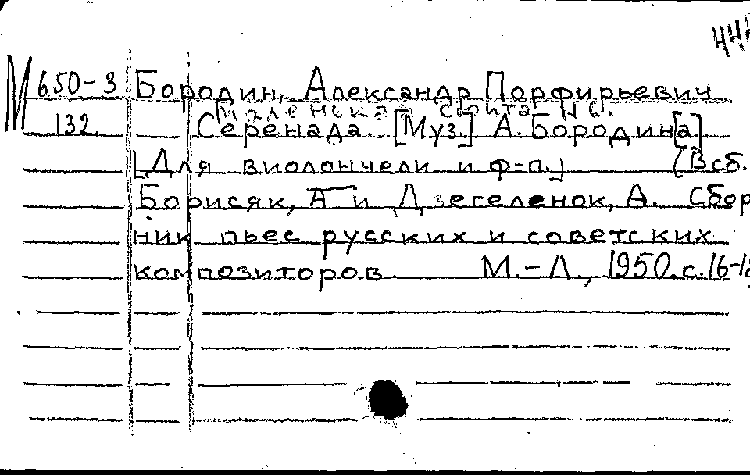 М 650-3 Бородин, Александр Порфирьевич
Маленькая сюита № 6.
132 Серенада. [Муз.] А. Бородина]
[Для виолончели и ф-п.] (В сб.
Борисяк, А и Дзегеленок, А. Сбор
ник пьес русских и советских
композиторов М.-Л., 1950. с. 16-18